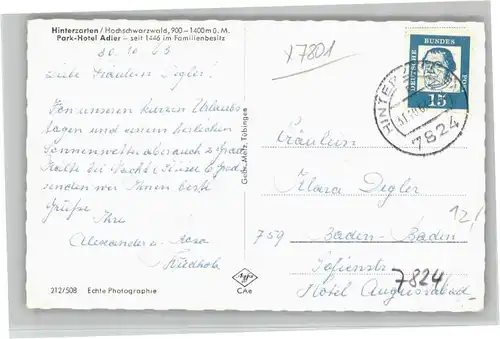 Hinterzarten / Hochschwarzwald, 900–1400 m ü. M.
Park-Hotel Adler – seit 1446 im Familienbesitz
30. 10 63
Liebe Fräulein Degler!
Von unseren kurzen Urlaubs
tagen und einem herlichen
Sonnenwetter aber auch 2 Grad
Kälte bei Nacht
senden wir Ihnen beste
Grüße
Ihre
Alexander u. Rosa
Friedhold
212/508 Echte Photographie
Gebr. Metz, Tübingen
Agfa
CAe
x7801
DEUTSCHE BUNDESPOST
15
HINTERZARTEN
7824
Fräulein
Klara Degler
759 Baden-Baden
Sofienstr
7824
Hotel Augustabad
12!